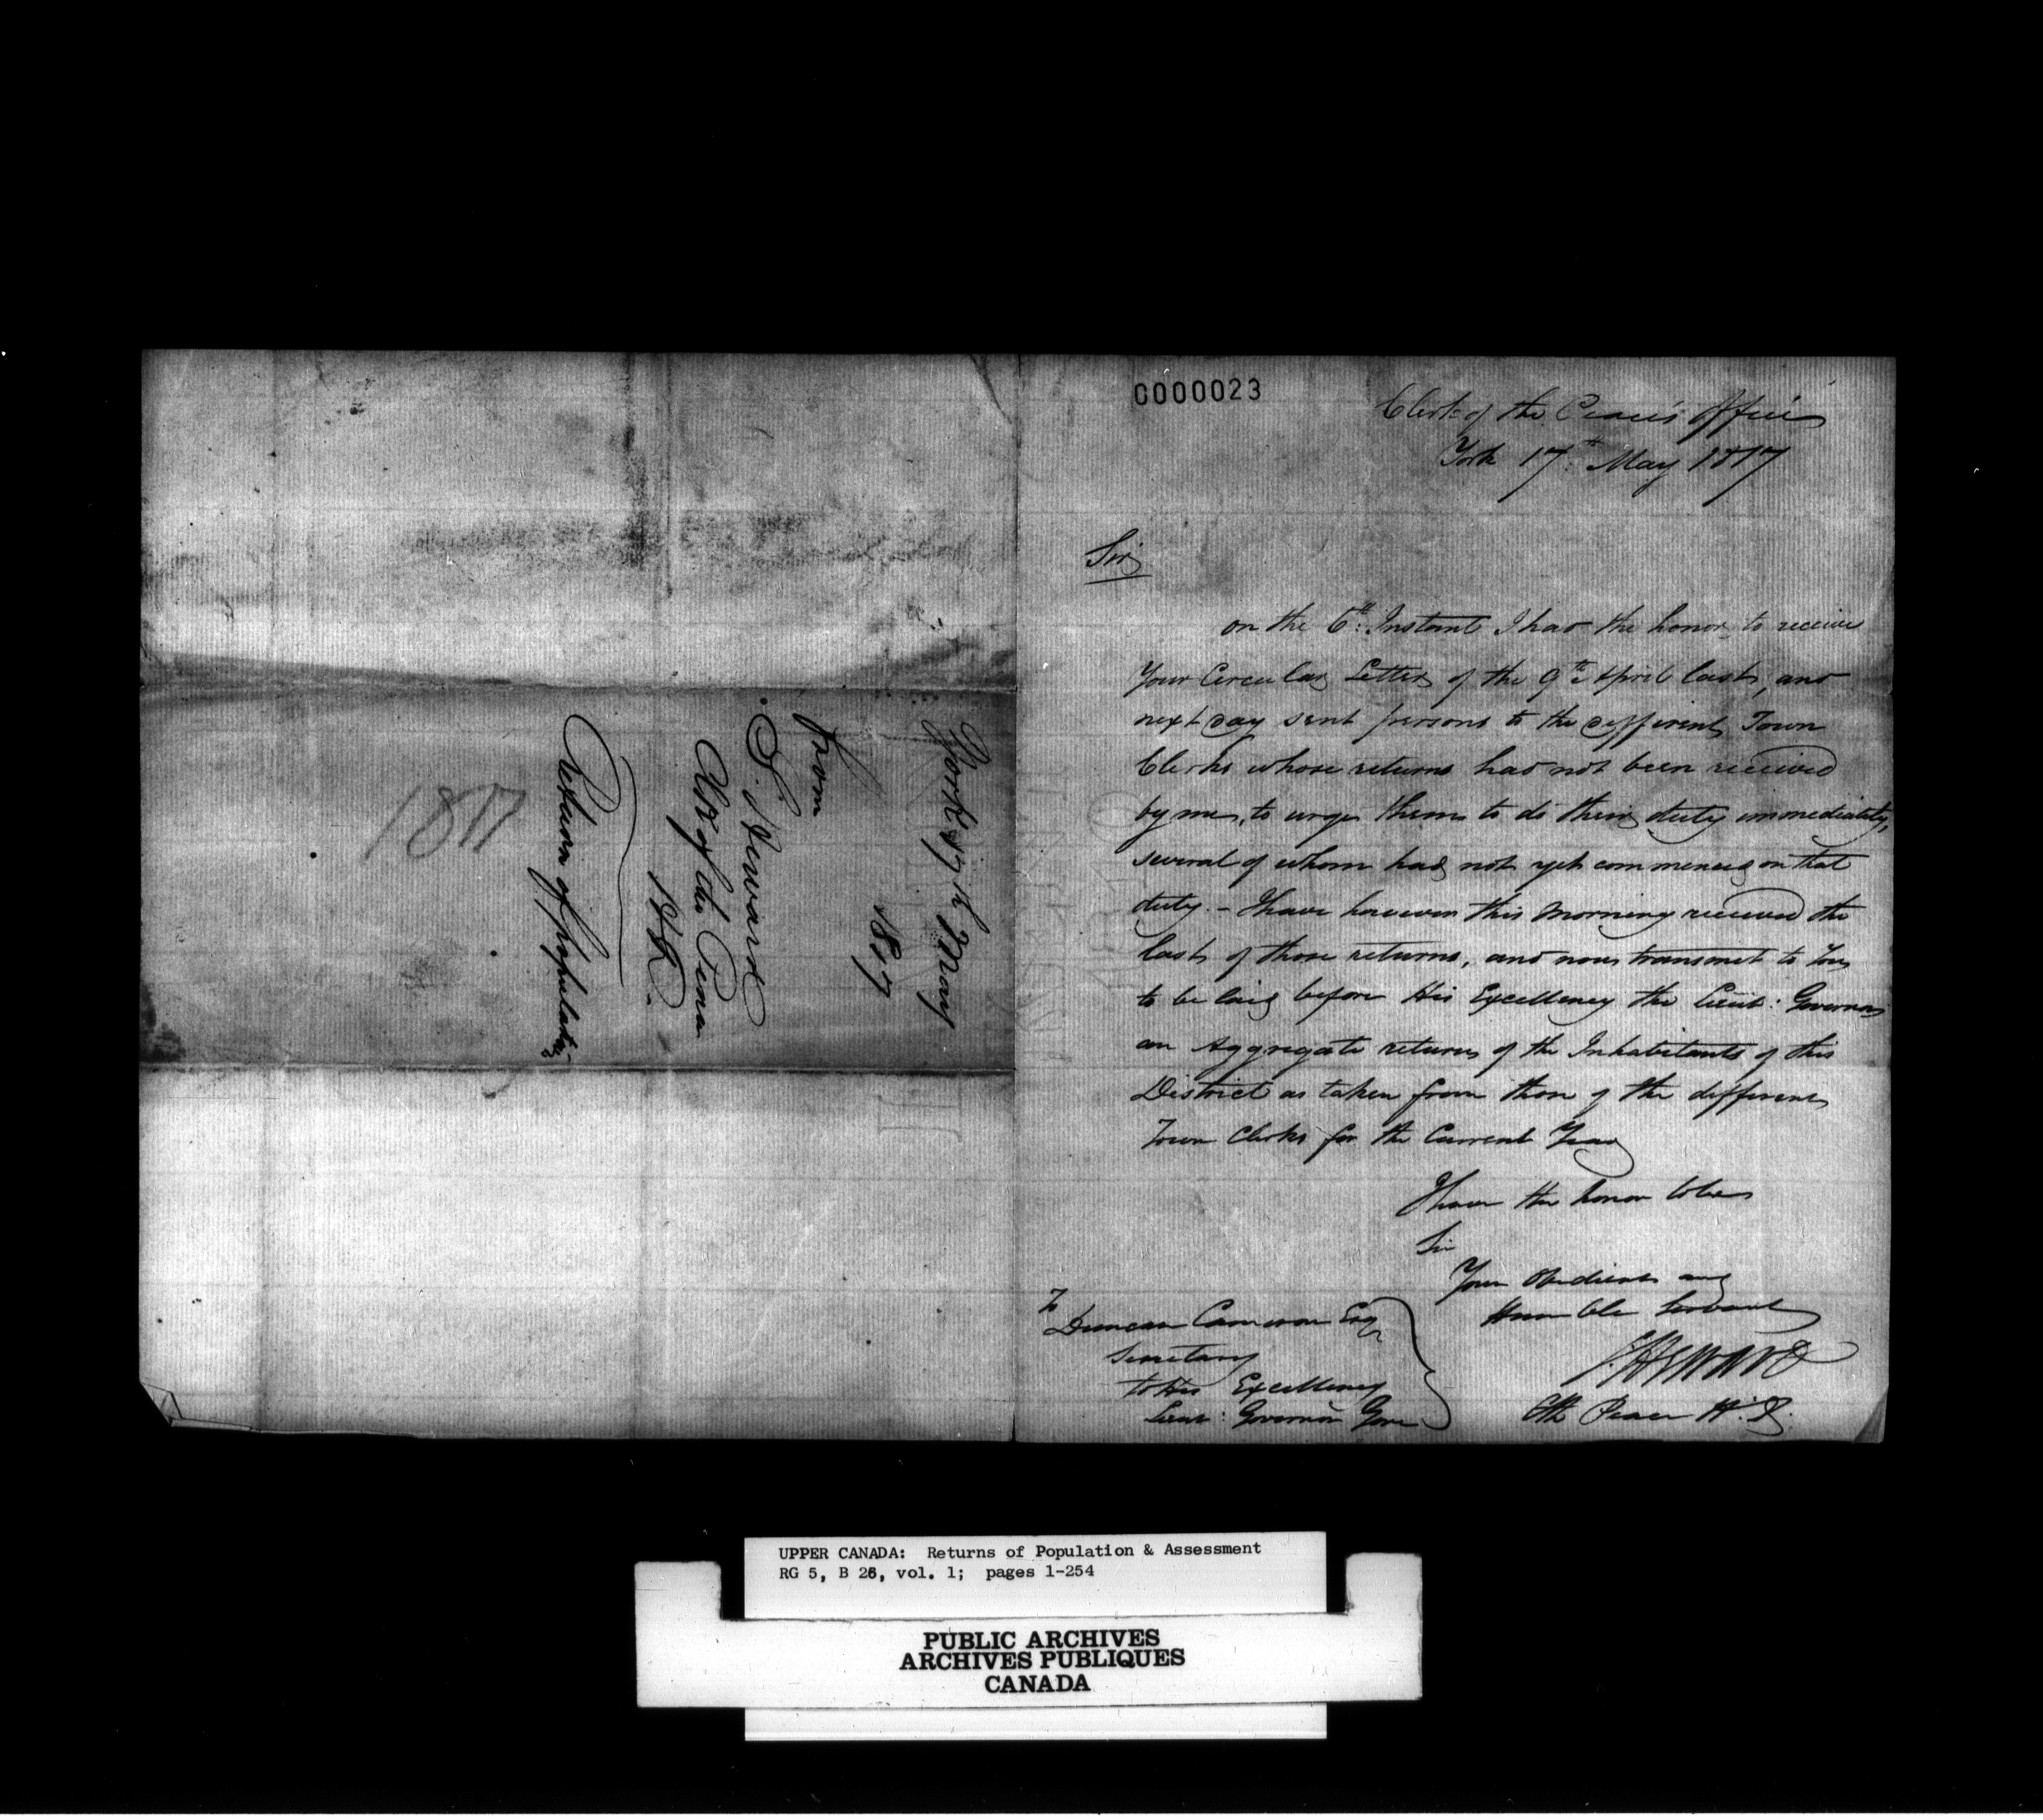 York 17th May
1817
from
S. Heward
Clk of the Peace
H.D.
Return of population
1817
0000023
Clerk of the Peace's Office
York 17th May 1817
Sir
on the 6th Instant I had the honor, to receive
Your Circular Letter of the 9th April last, and
next day sent persons to the different Town
Clerks whose returns had not been received
by me, to urge them to do their duty immediately,
several of whom had not yet commenced on that
duty. - I have however this morning received the
last of those returns, and now transmit to You
to be laid before His Excellency the Lieut: Governor
an Aggregate return of the Inhabitants of this
District as taken from those of the different
Town Clerks for the Current Year
I have the honor to be
Sir
Your Obedient and
Humble Servant
S HEWARD
Clk Peace H.D.
To
Duncan Cameron Esqr
Secretary
to His Excellency
Lieut: Governor Gore
UPPER CANADA: Returns of Population & Assessment
RG 5, B 26, vol. 1; pages 1-254
PUBLIC ARCHIVES
ARCHIVES PUBLIQUES
CANADA